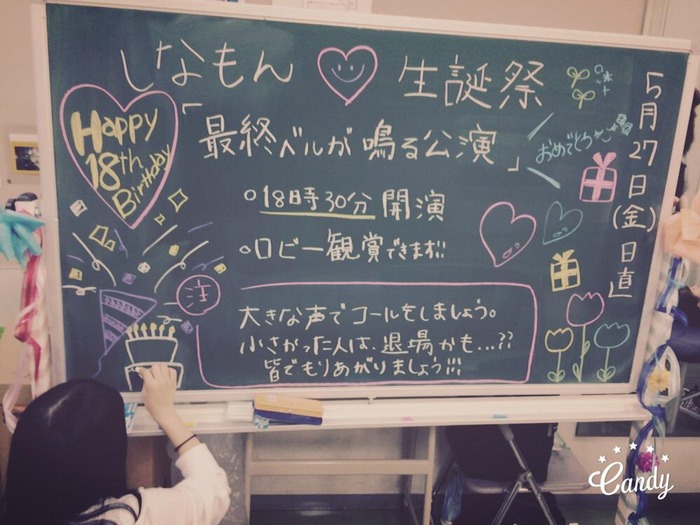 しなもん 生誕祭
Happy
18th
Birthday
「最終ベルが鳴る公演」
おめでとう
○18時30分 開演
○ロビー観賞できます!!
注
大きな声でコールをしましょう。
小さかった人は、退場かも...??
皆でもりあがりましょう!!!
5月27日(金)日直
Candy